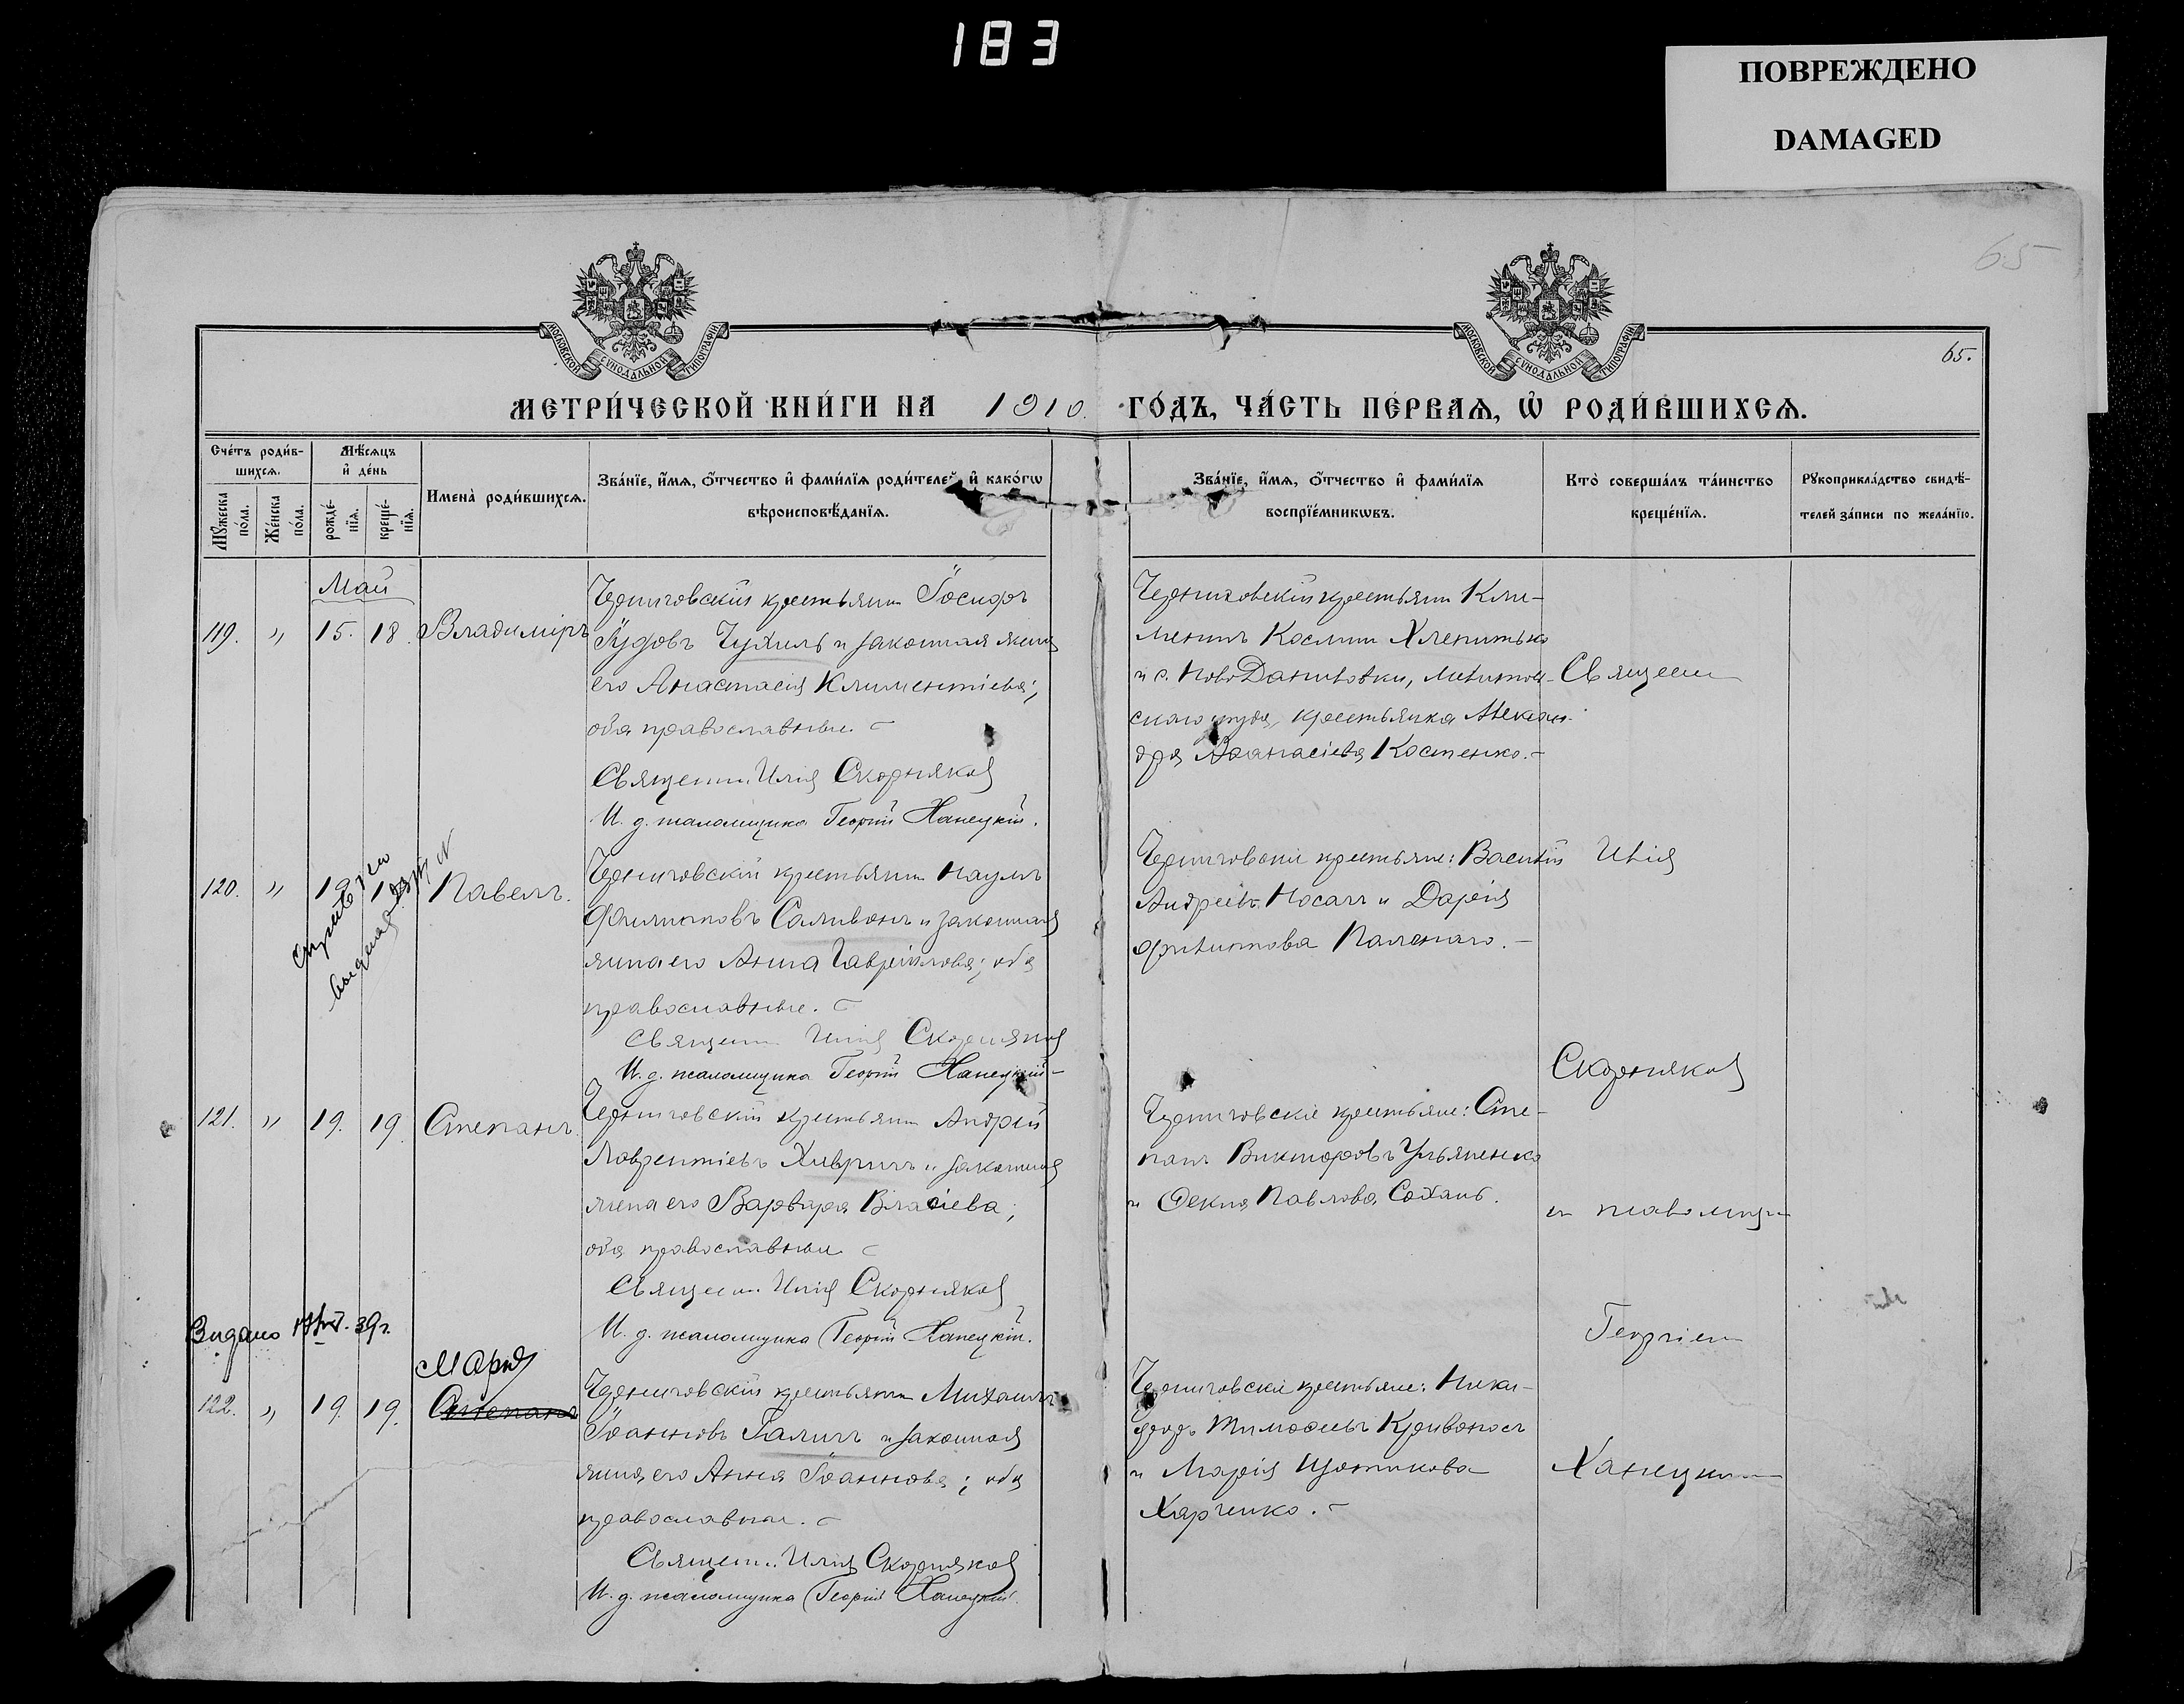 183
ПОВРЕЖДЕНО
DAMAGED
65
МОСКОВСКОЙ СѴНОДАЛЬНОЙ ТИПОГРАФІИ
МОСКОВСКОЙ СѴНОДАЛЬНОЙ ТИПОГРАФІИ
65.
МЕТРИ́ЧЕСКОЙ КНИ́ГИ НА 1910. ГО́ДЪ, ЧА́СТЬ ПЕ́РВАѦ, Ѡ҆ РОДИ́ВШИХСѦ.
Сче́тъ роди́в-
шихсѧ.
Мꙋ́жеска по́ла.
Же́нска по́ла.
Мѣ́сѧцъ
и҆ де́нь
рожде́-
нїѧ.
креще́-
нїѧ.
Имена̀ роди́вшихсѧ.
Зва́нїе, и҆́мѧ, ѻ҆́тчество и҆ фами́лїѧ роди́телей, и҆ како́гѡ
вѣроисповѣ́данїѧ.
Зва́нїе, и҆́мѧ, ѻ҆́тчество и҆ фами́лїѧ
воспрїе́мникѡвъ.
Кто̀ соверша́лъ та́инство
креще́нїѧ.
Рꙋкоприкла́дство свидѣ́-
телей за́писи по жела́нїю.
Май
119. " 15. 18. Владиміръ
Черниговскій крестьянин Іосифъ
Чухиль и законная жена
его Анастасія Климентіева;
оба православные.
Священ. Илія Скорняков
И. д. псаломщика Георгій Ханецкій.
Черниговскій крестьянин Кли-
ментъ Космин
и с. НовоДаниловки, Мелитоп-
скаго уезда, крестьянка Алексан-
дра Аѳанасіева Костенко.
120. " 19 19 Павелъ.
Черниговскій крестьянин Наумъ
Филиповъ Саливонъ и законная
жена его Анна Гавріилова; оба
православные.
Священ. Илія Скорняков
И. д. псаломщика Георгій Ханецкій
Черниговскіе крестьяне: Василій
Андреевъ Носачъ и Дарія
Филипова
121. " 19. 19. Степанъ.
Черниговскій крестьянин Андрей
Лаврентіевъ Хивричъ и законная
жена его Варвара Власіева;
оба православные
Священ. Илія Скорняков
И. д. псаломщика Георгій Ханецкій.
Черниговскіе крестьяне: Сте-
панъ Викторовъ Ульяненко
и Ѳекла Павлова Сохань.
Видано 39г.
Мария
122. " 19. 19. Степанъ
Черниговскій крестьянин Михаилъ
Іоанновъ Галичъ и законная
жена его Анна Іоаннова; оба
православные.
Священ. Илія Скорняков
И. д. псаломщика Георгій Ханецкій.
Черниговскіе крестьяне: Ники-
форъ Тимоѳеевъ Кривоносъ
и Марія
Харченко.
Священн
Илія
Скорняков
съ псаломщик
Георгіем
Ханецким